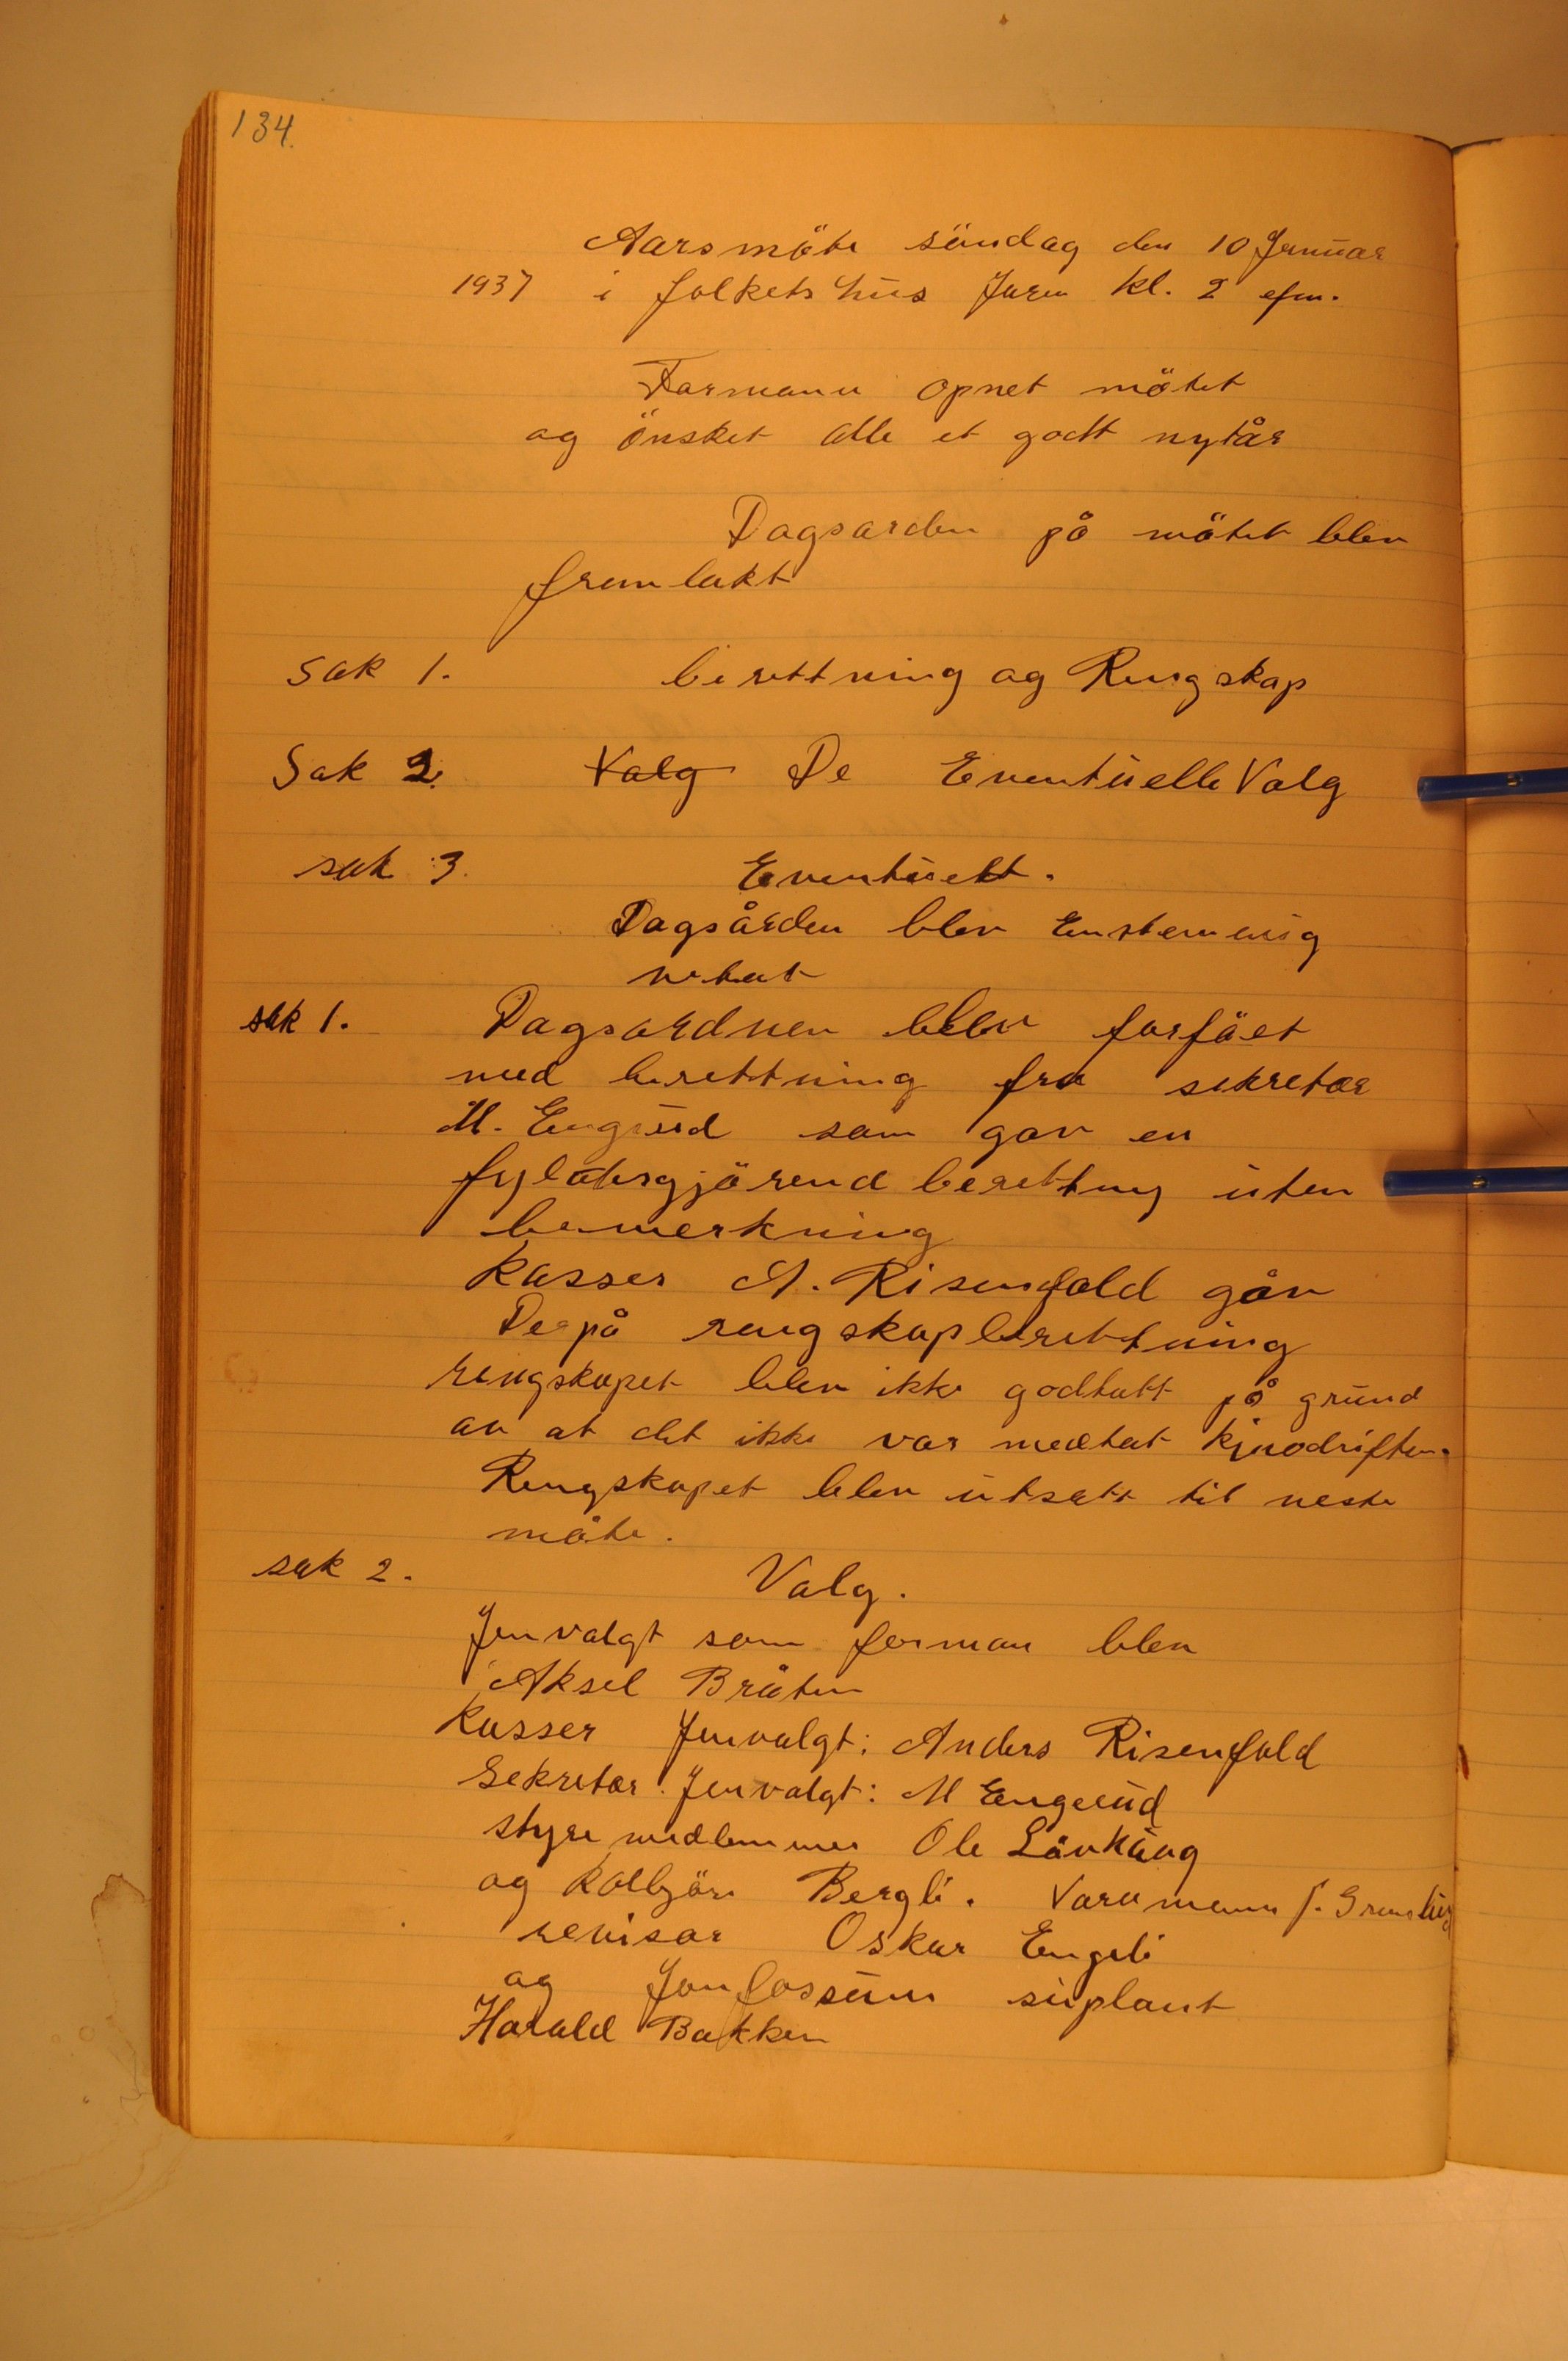 134.
Aarsmöte söndag den 10 Januar
1937 i folkets hus Jaren kl. 2 efm.
Formann opnet mötet
og önsket alle et godt nytår
Dagsorden på mötet blev
fremlakt
Sak 1. berettning og Rengskap
Sak 2. Valg De Eventuelle Valg
sak 3. Eventuelt.
Dagsården blev Enstemmig
vetat
sak 1. Dagsordnen blev forfået
med berettning fra sekretær
M. Engerud som gav en
fylatesgjörend berettning uten
bemerkning
kasser A. Risenfald gav
Depå rengskapberettning
rengskapet blev ikke godtatt på grund
av at det ikke var medtat kjnodriften.
Rengskapet blev utsatt til neste
möte.
sak 2. Valg.
Jenvalgt som forman blev
Aksel Bråten
kasser Jenvalgt: Anders Risenfald
Sekretær Jenvalgt: M Engerud
styre medlemmer Ole Lövhaug
og Kolbjörn Bergli. Varamann J.
revisor Oskar Engeli
og Jon fossum suplant
Harald Bakken